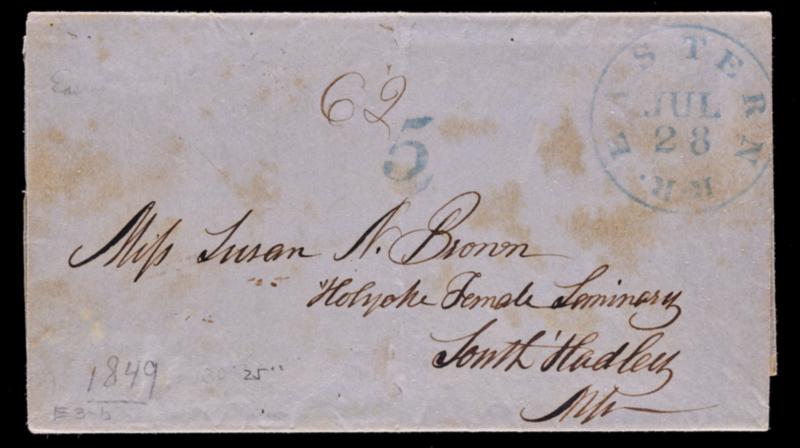 EASTERN
JUL
28
R.R.
62
5
Miss Susan N. Brown
Holyoke Female Seminary
South Hadley
Ms
1849
25
E3-b